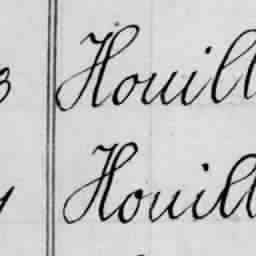 3 Houill
Houill